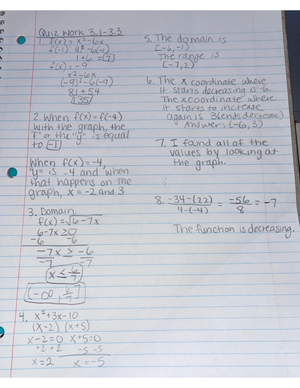 Quiz Work 3.1-3.3
1. f(x) = x²-6x
f(-1)
1+6 = (7)
f(x) = -9
x²-6x
(-9)²-6(-9)
81+54
135
2. When f(x) = f(-4)
with the graph, the
"y" is equal
to -1
When f(x) = -4,
"y" is -4 and when
that happens on the
graph, x = -2 and 3
3. Domain
f(x) = √6-7x
6-7x≥0
-6 -6
-7x ≥ -6
-7 -7
x ≤ 6/7
(-∞, 6/7]
4. x²+3x-10
(x-2) (x+5)
x-2=0 x+5=0
+2 +2 -5 -5
x=2 x=-5
5. The domain is
The range is
6. The x coordinate where
it starts decreasing is -6.
The x coordinate where
it starts to increase
again is 3
Answer: (-6,3)
7. I found all of the
values by looking at
the graph.
8. -34-(22) = -56 = -7
4-(-4) 8
The function is decreasing.